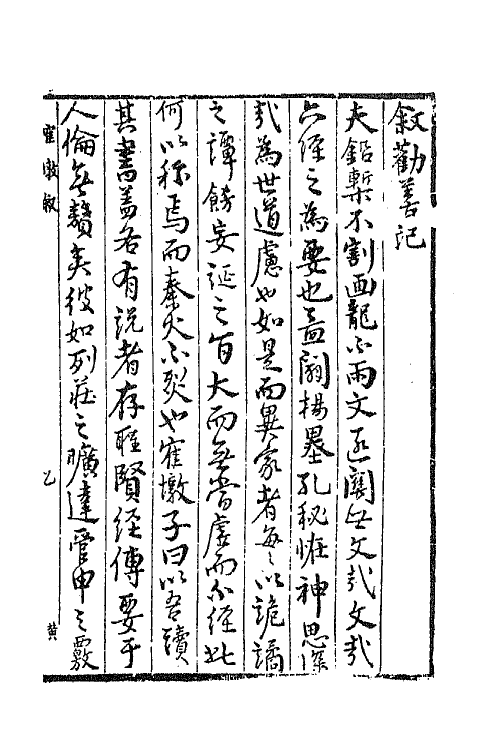 叙勸善記
夫鉛槧不割画龍不雨文逐闢无文哉文哉
六經之為要也孟闢楊墨孔秘恠神思深
哉為世道慮也如是而異家者每々以詭譎
之譚飾妄誕之旨大而無當虛而不經此
何以称焉而秦火不烈也霍墩子曰以吾讀
其書盖各有説者存聖賢經傳要乎
人倫無贅矣彼如列莊之曠達管申之覈
霍墩叙
乙
黄